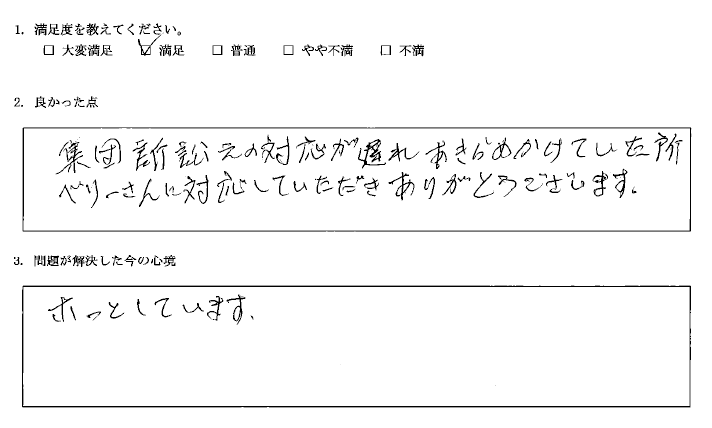 1. 満足度を教えてください。
□ 大変満足 ☑ 満足 □ 普通 □ やや不満 □ 不満
2. 良かった点
集団訴訟えの対応が遅れあきらめかけていた所
ベリーさんに対応していただきありがとうございます。
3. 問題が解決した今の心境
ホっとしています。